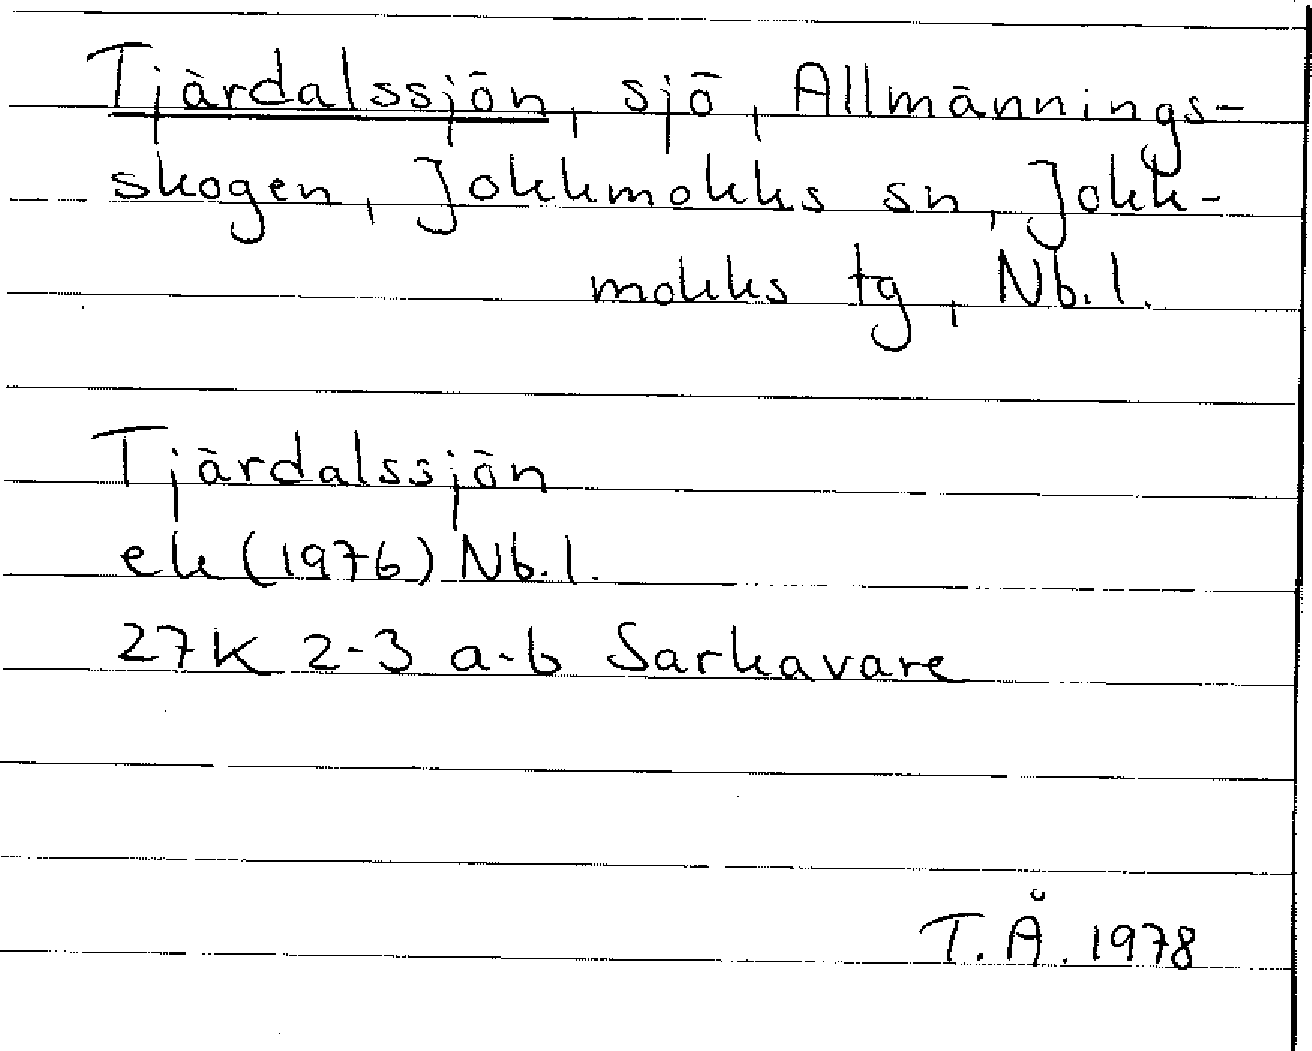 Tjärdalssjön, sjö, Allmännings-
skogen, Jokkmokks sn, Jokk-
mokks tg, Nb. l.
Tjärdalssjön
ek (1976) Nb. l.
27K 2-3 a-b Sarkavare
T. Å. 1978